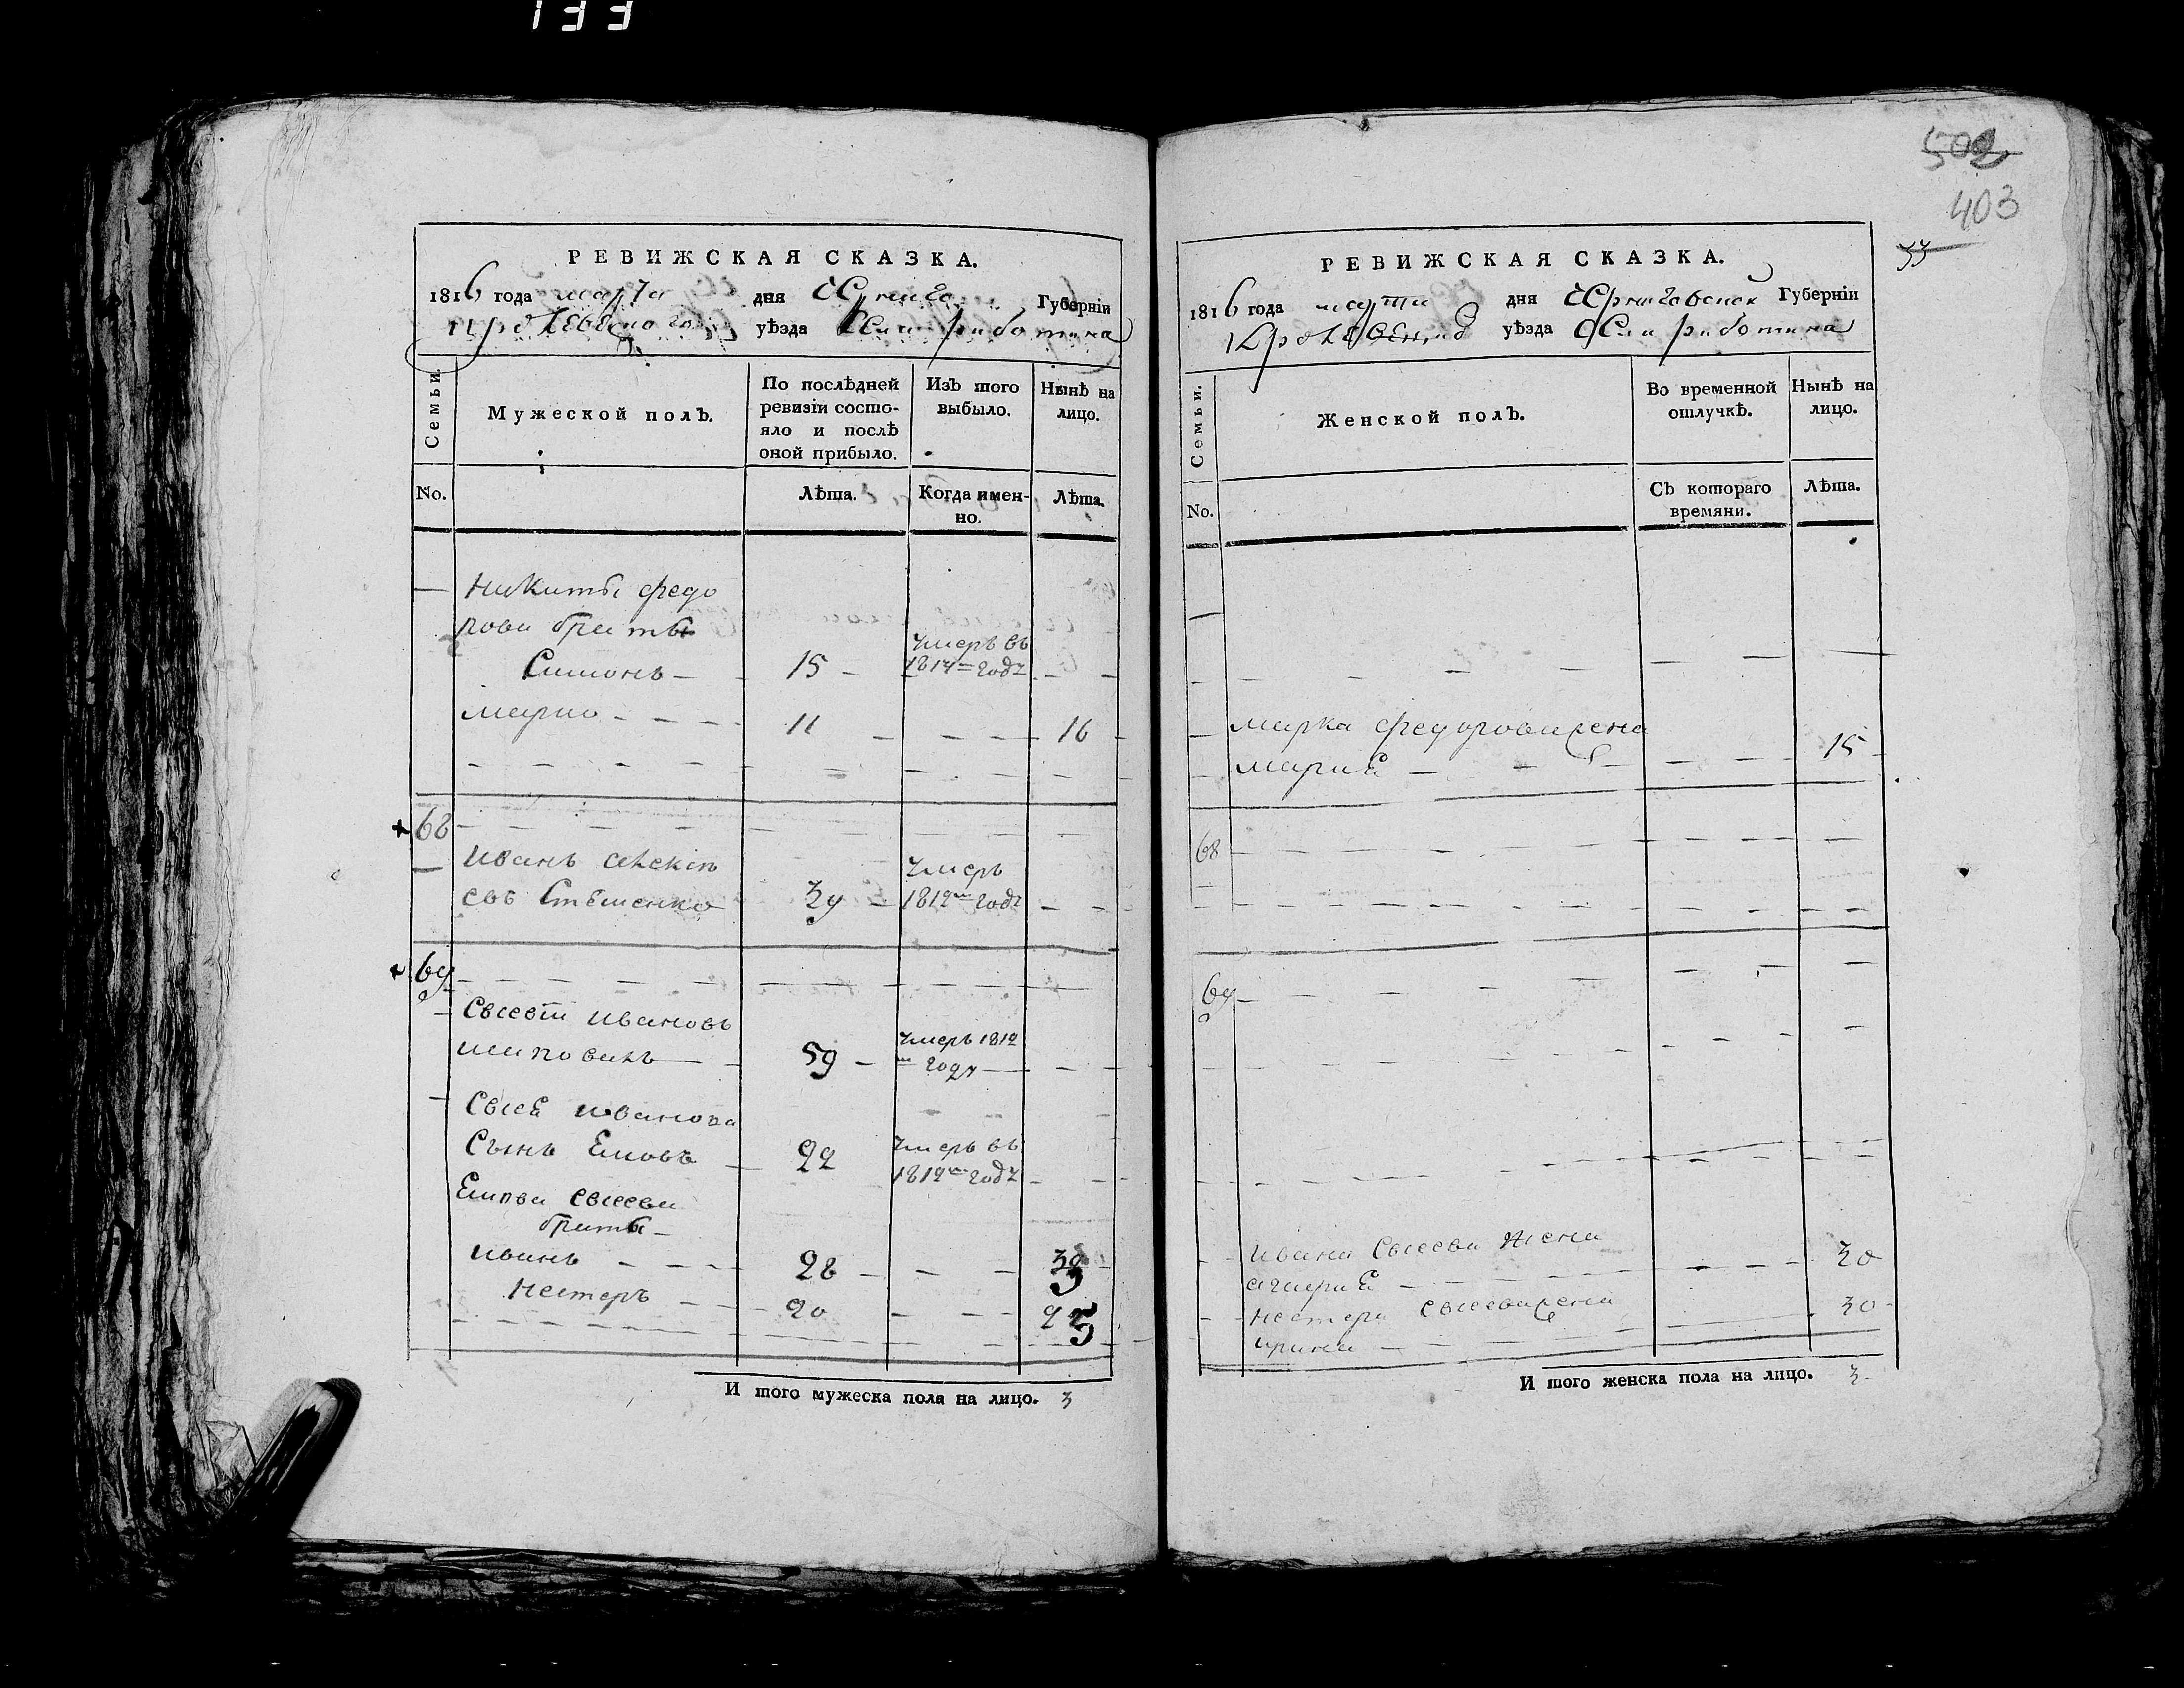 133
502
403
33
РЕВИЖСКАЯ СКАЗКА.
1816 года марта дня Черниго Губерніи
Кролевецкого уѣзда
Семьи.
Мужеской полъ.
По послѣдней ревизіи состо-
яло и послѣ
оной прибыло.
Изъ того
выбыло.
Нынѣ на
лицо.
No.
Лѣта.
Когда имен-
но.
Лѣта.
Никиты Федо
рова браты
Симонъ 15 умеръ въ
1814м году
Марко 11 16
68
Иванъ Алексѣ
евъ Стешенко 39 умеръ
1812м году
69
Евсевій Ивановъ
59 умеръ 1812
м году
Евсея Иванова
Сынъ 22 умеръ въ
1812м году
Евсеева
браты
Иванъ 28 33
Нестеръ 20 25
И того мужеска пола на лицо. 3
РЕВИЖСКАЯ СКАЗКА.
1816 года марта дня Черниговской Губерніи
уѣзда
Семьи.
Женской полъ.
Во временной
отлучкѣ.
Нынѣ на
лицо.
No.
Съ котораго
времяни.
Лѣта.
Марка Федорова жена
Мария 15
68
69
Ивана Евсеева жена 30
Нестера Евсеева жена 30
Ирина
И того женска пола на лицо. 3